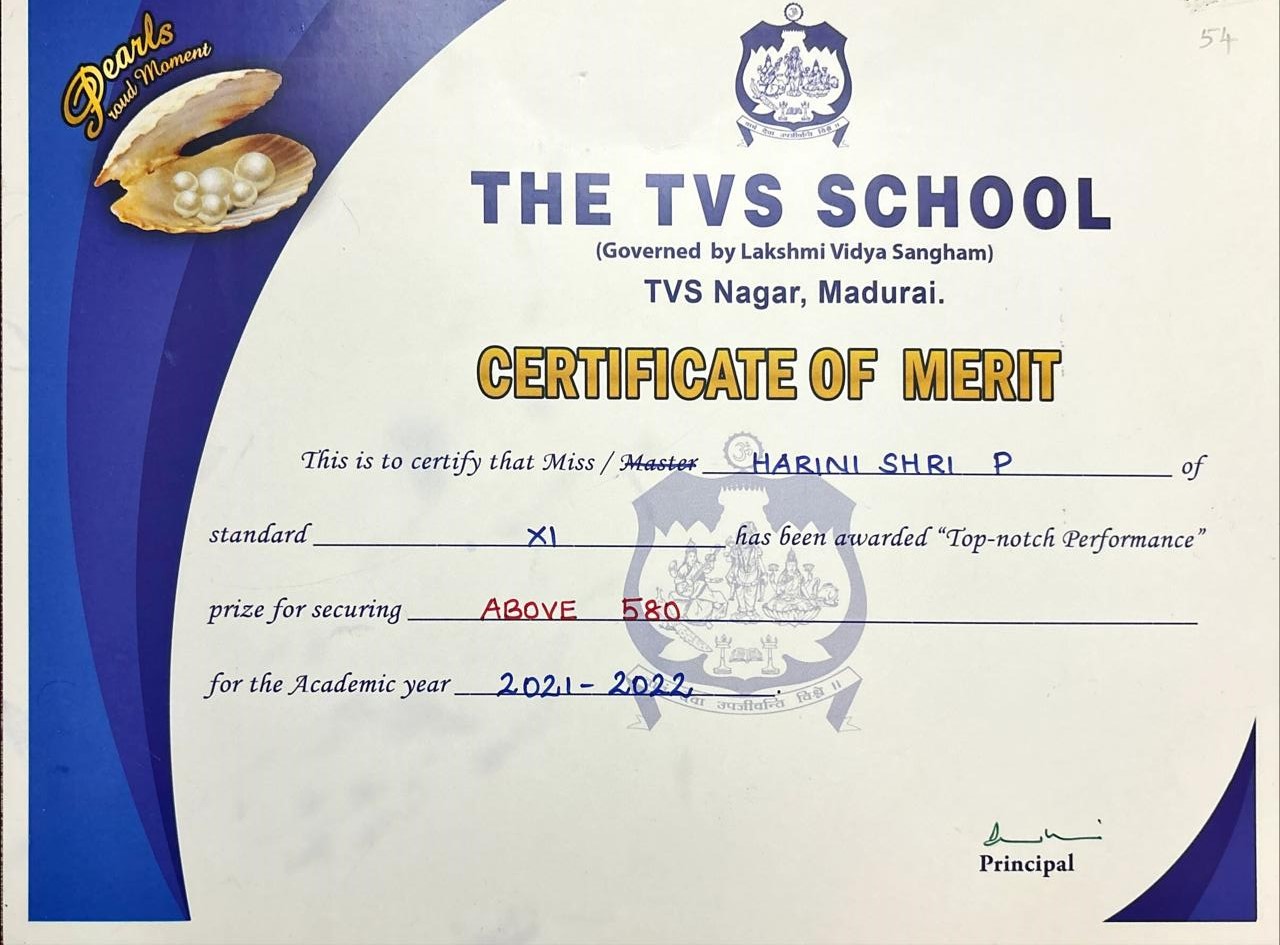 54
Pearls
Proud Moment
वाचं देवा उपजीवन्ति विश्वे ॥
THE TVS SCHOOL
(Governed by Lakshmi Vidya Sangham)
TVS Nagar, Madurai.
CERTIFICATE OF MERIT
This is to certify that Miss / Master HARINI SHRI P of
standard XI has been awarded “Top-notch Performance”
prize for securing ABOVE 580
for the Academic year 2021-2022.
देवा उपजीवन्ति विश्वे ॥
Principal